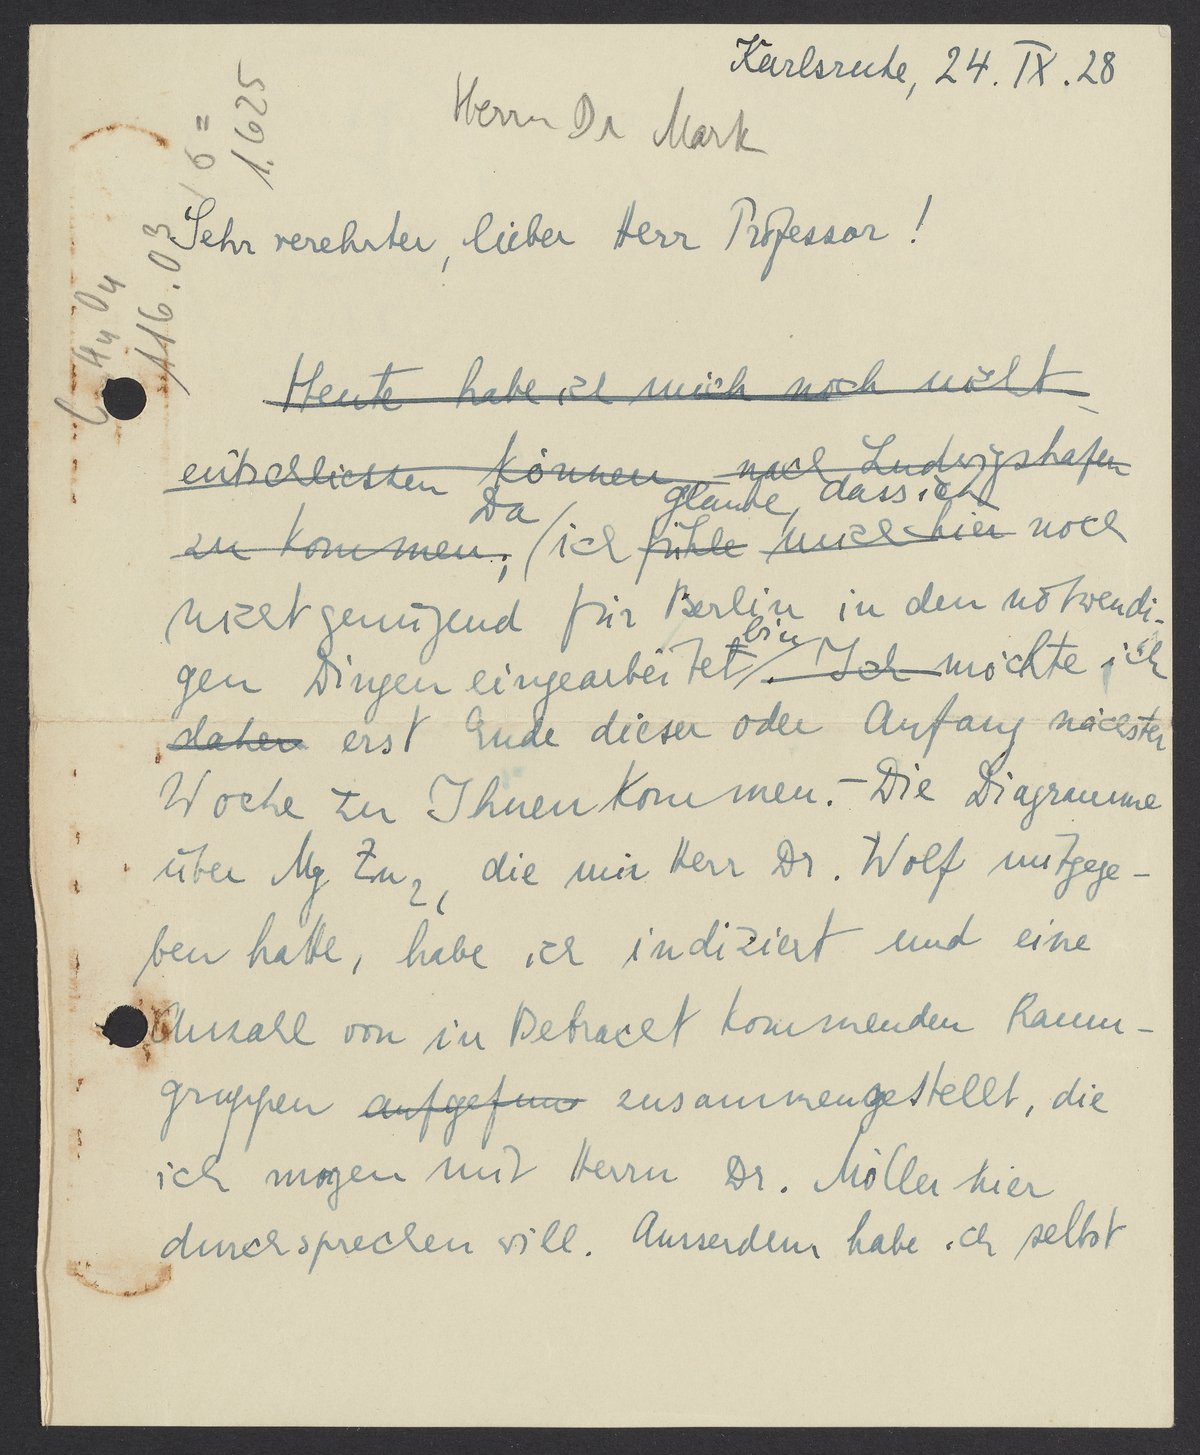 Karlsruhe, 24. IX. 28
Herrn Dr Mark
σ =
1.625
C4 H4 O4
116.03
Sehr verehrter, lieber Herr Professor!
Heute habe ich mich noch nicht
entschliessen können nach Ludwigshafen
Da glaube, dass ich
zu kommen; / ich fühle mich hier noch
nicht genügend für Berlin in den notwendi-
bin
gen Dingen eingearbeitet /. Ich möchte ich
daher erst Ende dieser oder Anfang nächster
Woche zu Ihnen kommen. – Die Diagramme
über Mg Zn2, die mir Herr Dr. Wolf mitgege-
ben hatte, habe ich indiziert und eine
Anzahl von in Betracht kommenden Raum-
gruppen aufgefun zusammengestellt, die
ich morgen mit Herrn Dr. Möller hier
durchsprechen will. Ausserdem habe ich selbst